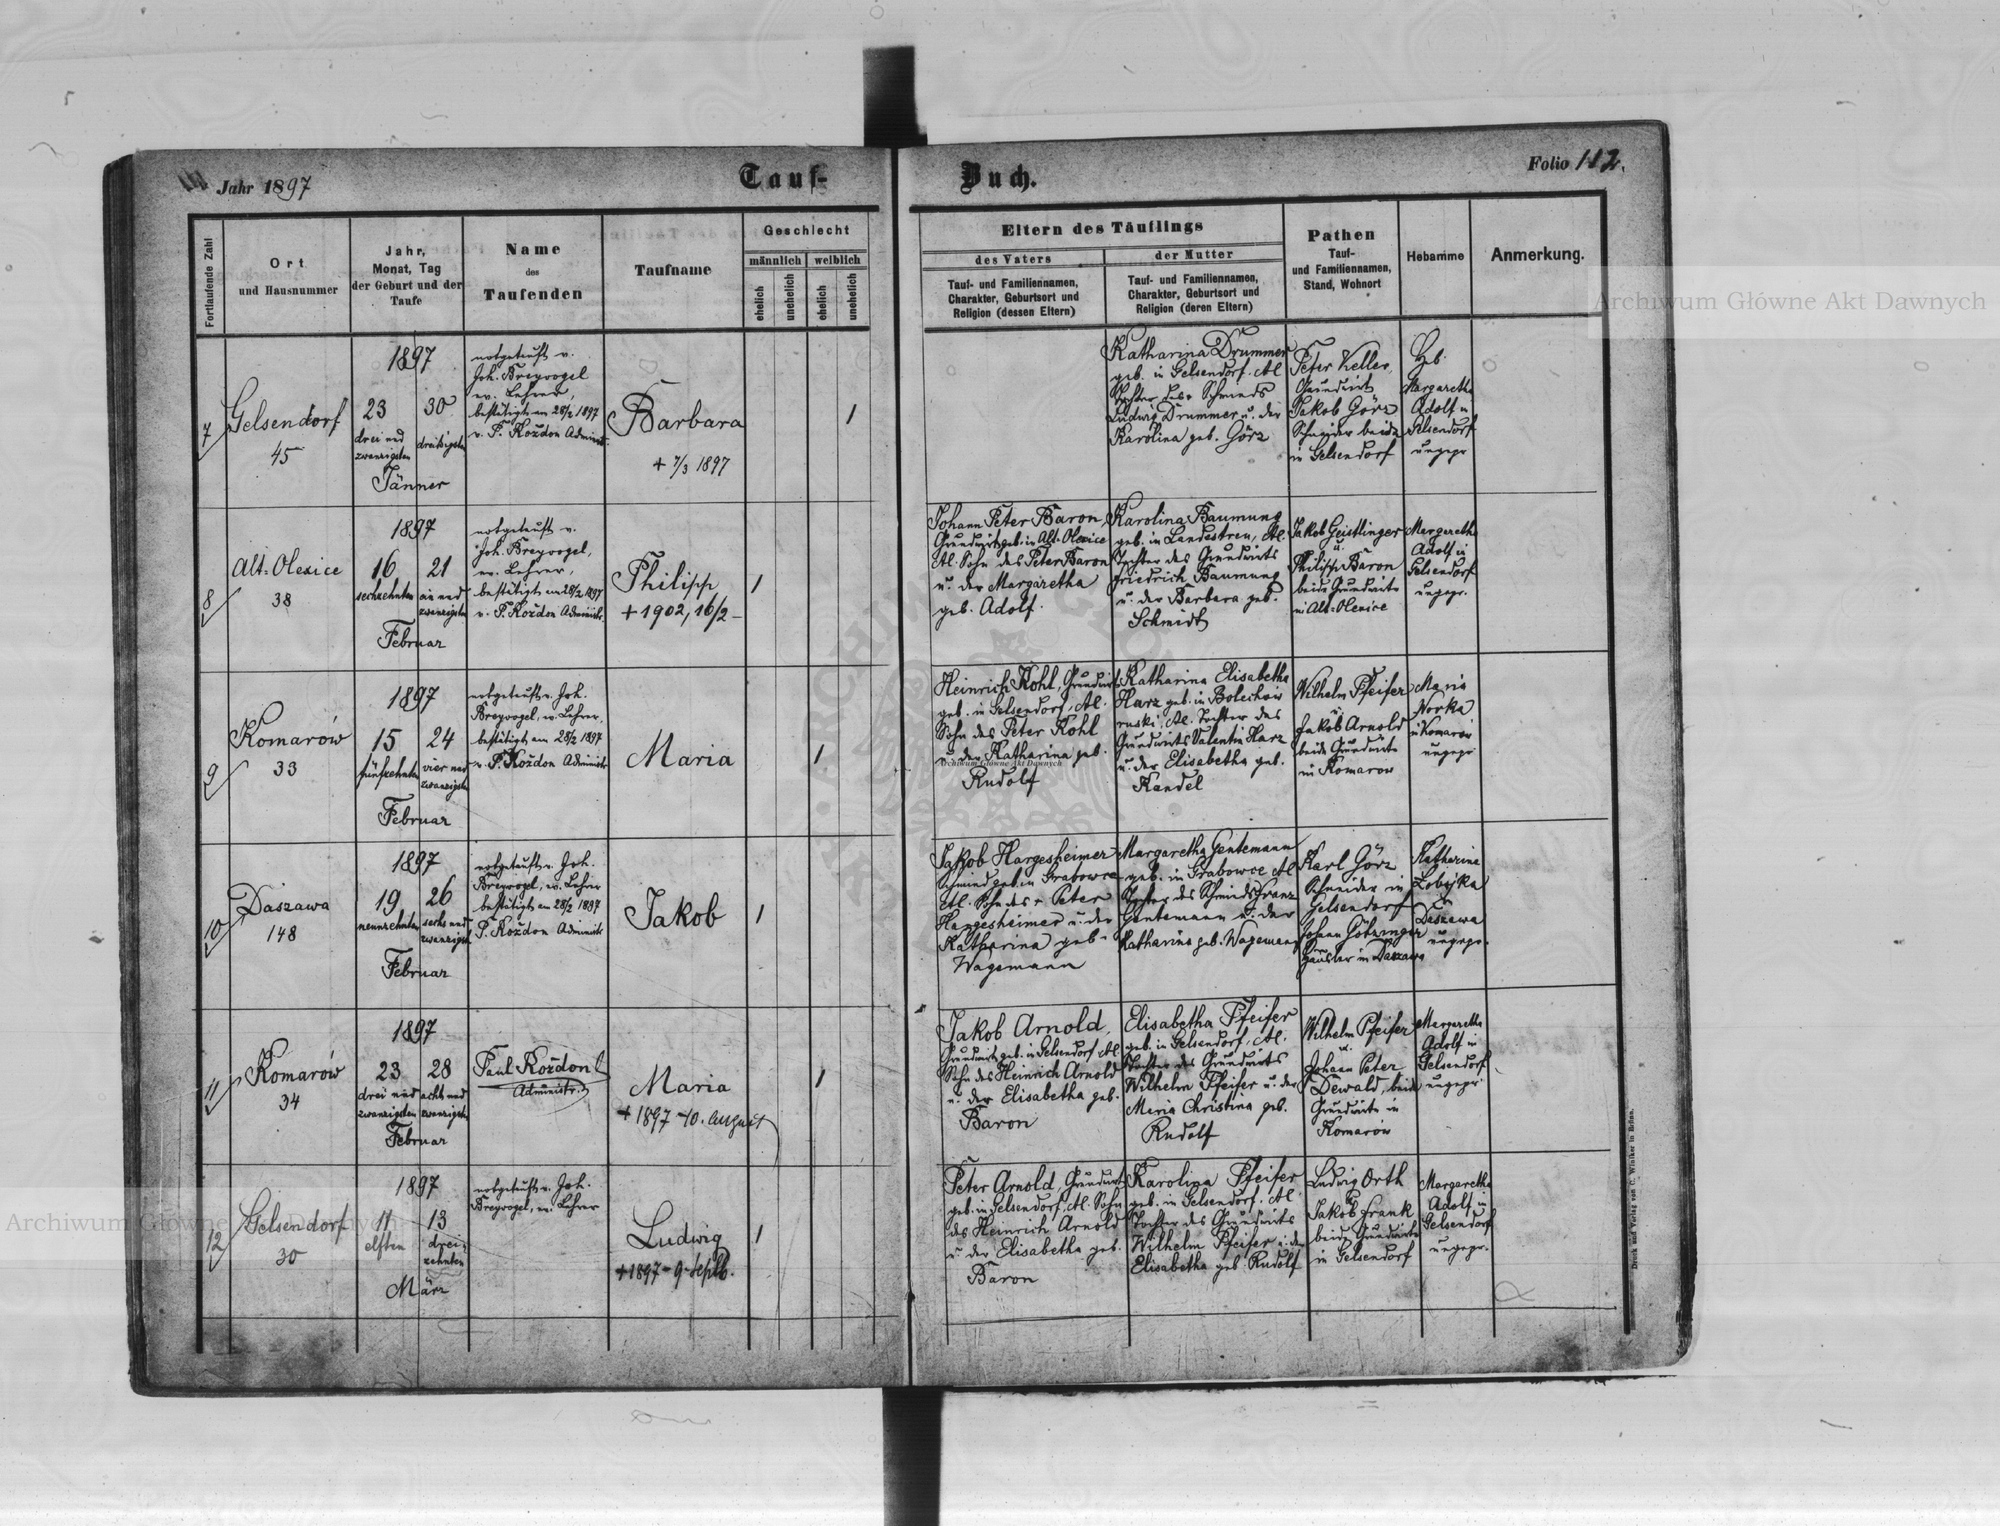 Jahr 1897
Tauf-
Buch.
Folio 112.
Fortlaufende Zahl
Ort
und Hausnummer
Jahr,
Monat, Tag
der Geburt und der
Taufe
Name
des
Taufenden
Taufname
Geschlecht
männlich
weiblich
ehelich
unehelich
ehelich
unehelich
Eltern des Täuflings
des Vaters
Tauf- und Familiennamen,
Charakter, Geburtsort und
Religion (dessen Eltern)
der Mutter
Tauf- und Familiennamen,
Charakter, Geburtsort und
Religion (deren Eltern)
Pathen
Tauf-
und Familiennamen,
Stand, Wohnort
Hebamme
Anmerkung.
7
Gelsendorf
45
1897
23 30
drei und dreißigsten
zwanzigsten
Jänner
notgetauft v.
Joh. Breyvogel
ev. Lehrer,
bestätigt am 28/2 1897
v. P. Kożdon Administr.
Barbara
+ 7/3 1897
1
Katharina Drummer
geb. in Gelsendorf. Al
Tochter des + Schmieds
Ludwig Drummer u. der
Karolina geb. Görz
Peter Keller,
Grundwirt
Jakob Görz
Schneider beide
in Gelsendorf
Hb.
Margaretha
Adolf in
Gelsendorf
ungepr
8
Alt-Olexice
38
1897
16 21
sechzehnten ein und
zwanzigsten
Februar
notgetauft v.
Joh. Breyvogel,
ev. Lehrer,
bestätigt am 28/2 1897
v. P. Kożdon Administr.
Philipp
+ 1902, 16/2 -
1
Johann Peter Baron,
Grundwirt geb. in Alt-Olexice
Al. Sohn des Peter Baron
u. der Margaretha
geb. Adolf.
Karolina Baumung
geb. in Landestreu, Al.
Tochter des Grundwirts
Friedrich Baumung
u. der Barbara geb.
Schmidt
Jakob Geistlinger
u.
Philipp Baron
beide Grundwirte
in Alt-Olexice
Margaretha
Adolf in
Gelsendorf
ungepr.
9
Komarów
33
1897
15 24
fünfzehnten vier und
zwanzigsten
Februar
notgetauft v. Joh.
Breyvogel, ev. Lehrer,
bestätigt am 28/2 1897
v. P. Kożdon Administr
Maria
1
Heinrich Kohl, Grundwirt
geb. in Gelsendorf, Al.
Sohn des Peter Kohl
u. der Katharina geb.
Rudolf
Katharina Elisabetha
Harz geb. in Bolechów
ruski, Al. Tochter des
Grundwirts Valentin Harz
u. der Elisabetha geb.
Kandel
Wilhelm Pfeifer
u.
Jakob Arnold
beide Grundwirte
in Komarow
Maria
Norka
in Komarów
ungepr
10
Daszawa
148
1897
19 26
neunzehnten sechs und
zwanzigst.
Februar
notgetauft v. Joh.
Breyvogel, ev. Lehrer
bestätigt am 28/2 1897
P. Kożdon Administr
Jakob
1
Jakob Hargesheimer
Schmied geb. in Grabowce
Al. Sohn des + Peter
Hargesheimer u. der
Katharina geb.
Wagemann
Margaretha Gentemann
geb. in Grabowce Al
Tochter des Schmieds Franz
Gentemann u. der
Katharina geb. Wagemann
Karl Görz
Schneider in
Gelsendorf
Johann Götzinger
Häusler in Daszawa
Katharina
in
Daszawa
ungepr.
11
Komarów
34
1897
23 28
drei und acht und
zwanzigsten zwanzigsten
Februar
Paul Kożdon
Administr.
Maria
+ 1897 - 10. August
1
Jakob Arnold,
Grundwirt geb. in Gelsendorf Al.
Sohn des Heinrich Arnold
u. der Elisabetha geb.
Baron
Elisabetha Pfeifer
geb. in Gelsendorf, Al.
Tochter des Grundwirts
Wilhelm Pfeifer u. der
Maria Christina geb.
Rudolf
Wilhelm Pfeifer
u.
Johann Peter
Dewald, beide
Grundwirte in
Komarów
Margaretha
Adolf in
Gelsendorf
ungepr
12
Gelsendorf
30
1897
11 13
elften drei-
zehnten
März
notgetauft v. Joh.
Breyvogel, ev. Lehrer
Ludwig
+ 1897 - 9. Septb.
1
Peter Arnold, Grundwirt
geb. in Gelsendorf, Al. Sohn
des Heinrich Arnold
u. der Elisabetha geb.
Baron
Karolina Pfeifer
geb. in Gelsendorf. Al.
Tochter des Grundwirts
Wilhelm Pfeifer u. der
Elisabetha geb. Rudolf
Ludwig Orth
Jakob Frank
beide Grundwirte
in Gelsendorf
Margaretha
Adolf in
Gelsendorf
ungepr.
Druck und Verlag von C. Winiker in Brünn.
Archiwum Główne Akt Dawnych
Archiwum Główne Akt Dawnych
Archiwum Główne Akt Dawnych